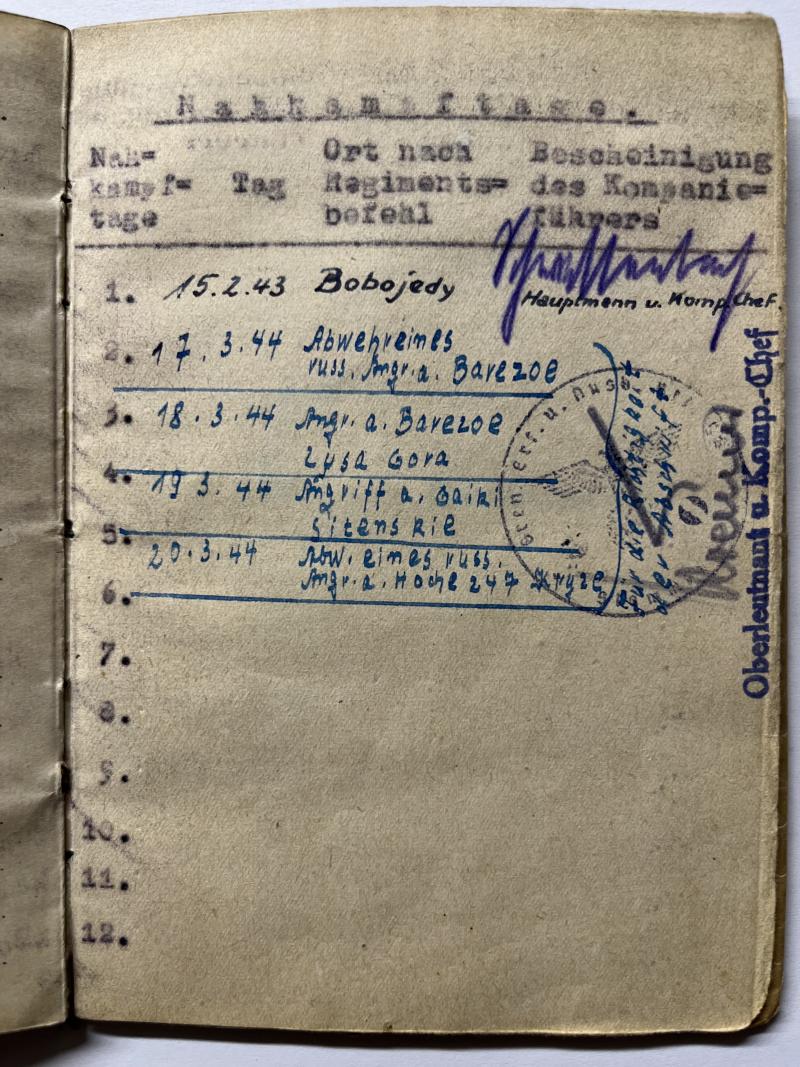 Nahkampftage.
Nah= kampf= tage
Tag
Ort nach Regiments= befehl
Bescheinigung des Kompanie= führers
1. 15.2.43 Bobojedy
Hauptmann u. Komp.Chef.
2. 17.3.44 Abwehr eines
russ. Angr. a. Barezoe
3. 18.3.44 Angr. a. Barezoe
Lysa Gora
4. 19.3.44 Angriff a. Gaiki
Sitenskie
5. 20.3.44 Abw. eines russ.
Angr. a. Höhe 247
6.
7.
8.
9.
10.
11.
12.
für die Richtigkeit
der Abschrift
Gren. Ers. u. Ausb.
Oberleutnant u. Komp.-Chef